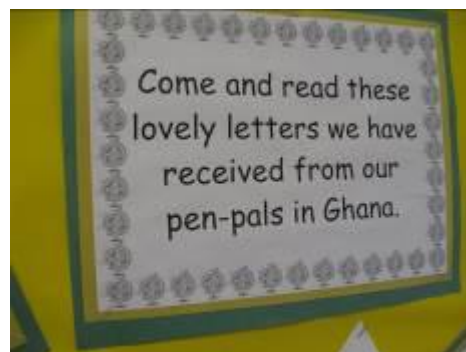 Come and read these
lovely letters we have
received from our
pen-pals in Ghana.